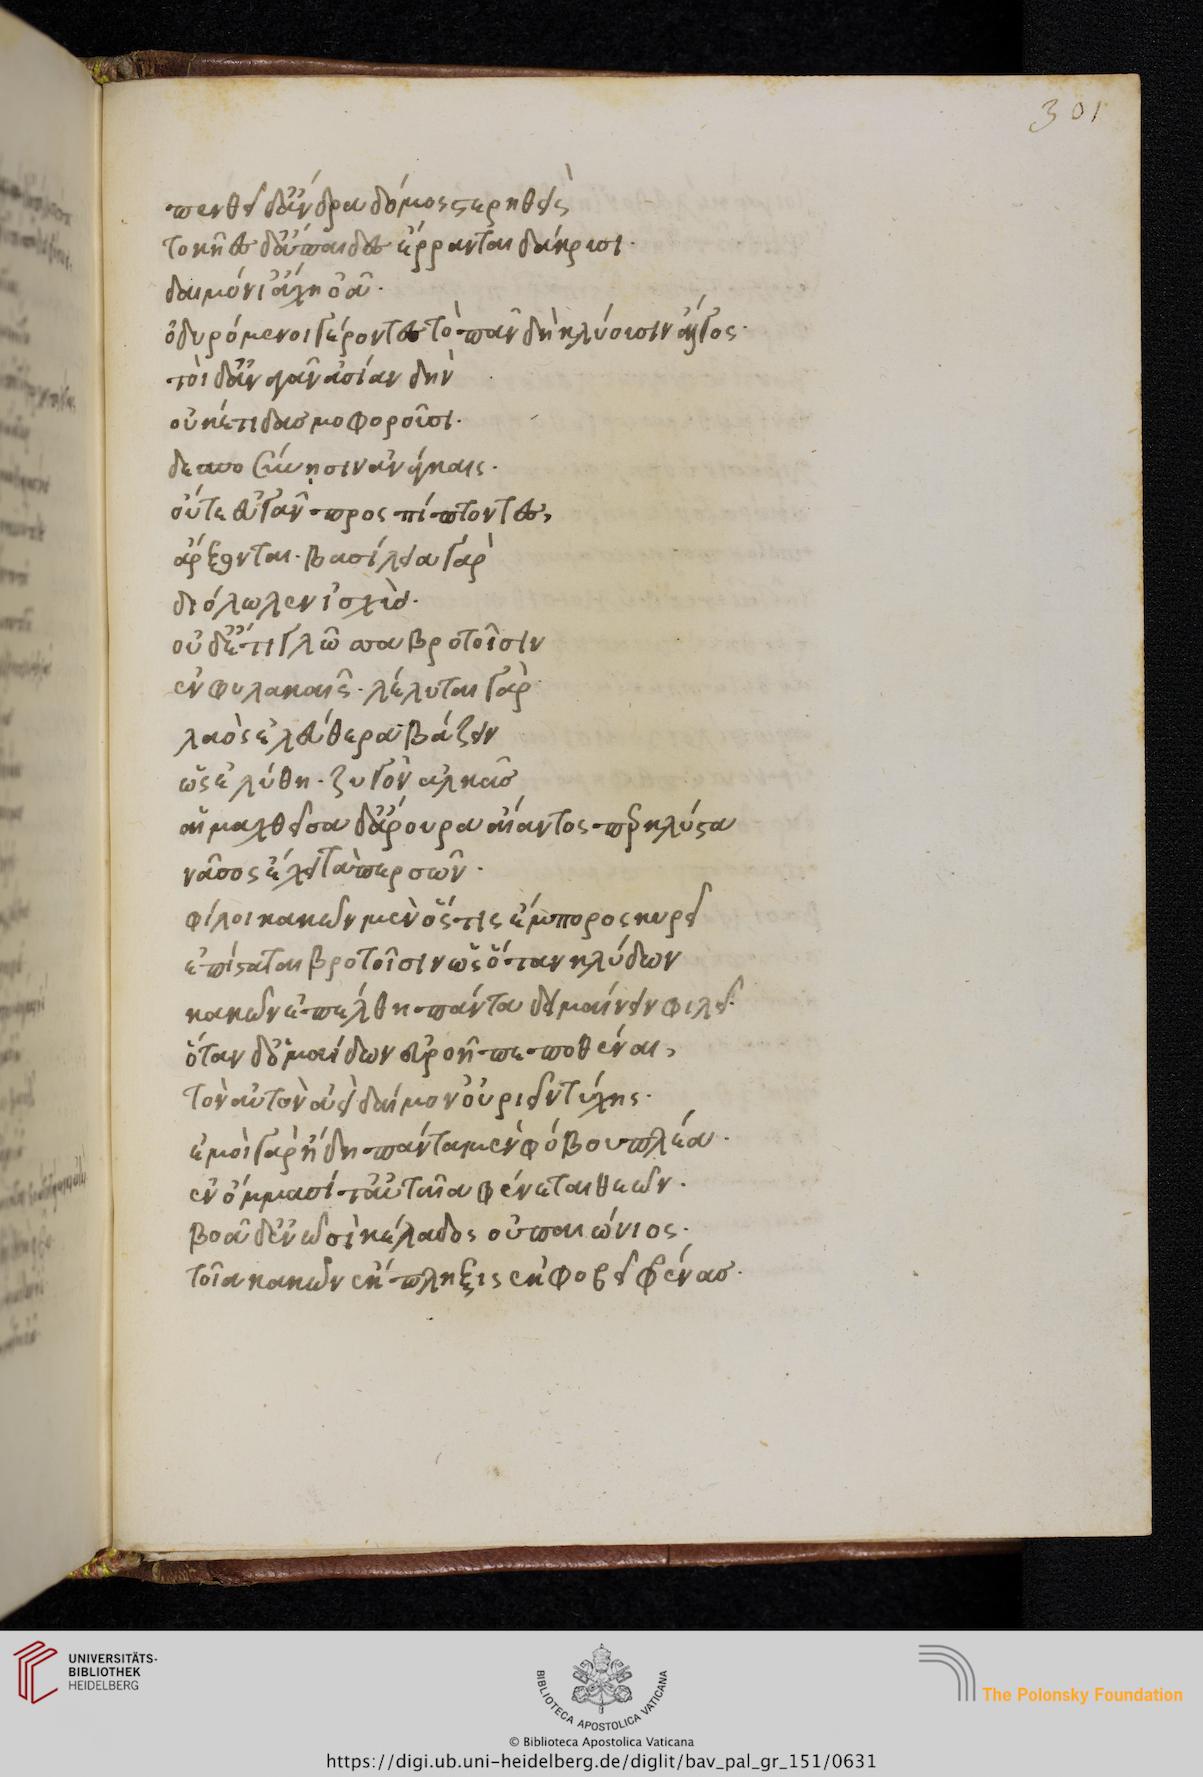 301
πενθεῖ δ' ἄνδρα δόμος στερηθεὶς
τοκῆες δ' ἄπαιδες ἔρρανται δάκρισι·
δαιμόνι' ἄχη ὀᾶ·
ὀδυρόμενοι γέροντες τὸ πᾶν δὴ κλύουσιν ἄλγος·
τοὶ δ' ἀν γᾶν ἀσίαν δὴν
οὐκέτι δασμοφοροῦσι·
δεσποσύνησιν ἀνάγκαις·
οὔτ' ἐς γᾶν προσπίπτοντες,
ἄρξονται· βασιλεία γὰρ
διόλωλεν ἰσχὺς·
οὐδ' ἔτι γλῶσσα βροτοῖσιν
ἐν φυλακαῖς· λέλυται γὰρ
λαὸς ἐλεύθερα βάζειν
ὡς ἐλύθη· ζυγὸν ἀλκᾶς
αἱμαχθεῖσα δ' ἄρουρα αἴαντος περικλύστα
νᾶσος ἔχει τὰ περσῶν·
φίλοι κακῶν μὲν ὅστις ἔμπορος κυρεῖ
ἐπίσταται βροτοῖσιν ὡς ὅταν κλύδων
κακῶν ἐπέλθη πάντα δειμαίνειν φιλεῖ·
ὅταν δ' ὁ δαίμων εὐροῆ πεποιθέναι,
τὸν αὐτὸν ἀεὶ δαίμον' οὐριεῖν τύχης·
ἐμοὶ γὰρ ἤδη πάντα μὲν φόβου πλέα·
ἐν ὄμμασί τ' ἀνταῖα φαίνεται θεῶν·
βοᾶ δ' ἐν ὠσὶ κέλαδος οὐ παιώνιος·
τοῖα κακῶν ἔκπληξις ἐκφοβεῖ φρένας·
UNIVERSITÄTS-
BIBLIOTHEK
HEIDELBERG
BIBLIOTECA APOSTOLICA VATICANA
The Polonsky Foundation
© Biblioteca Apostolica Vaticana
https://digi.ub.uni-heidelberg.de/diglit/bav_pal_gr_151/0631